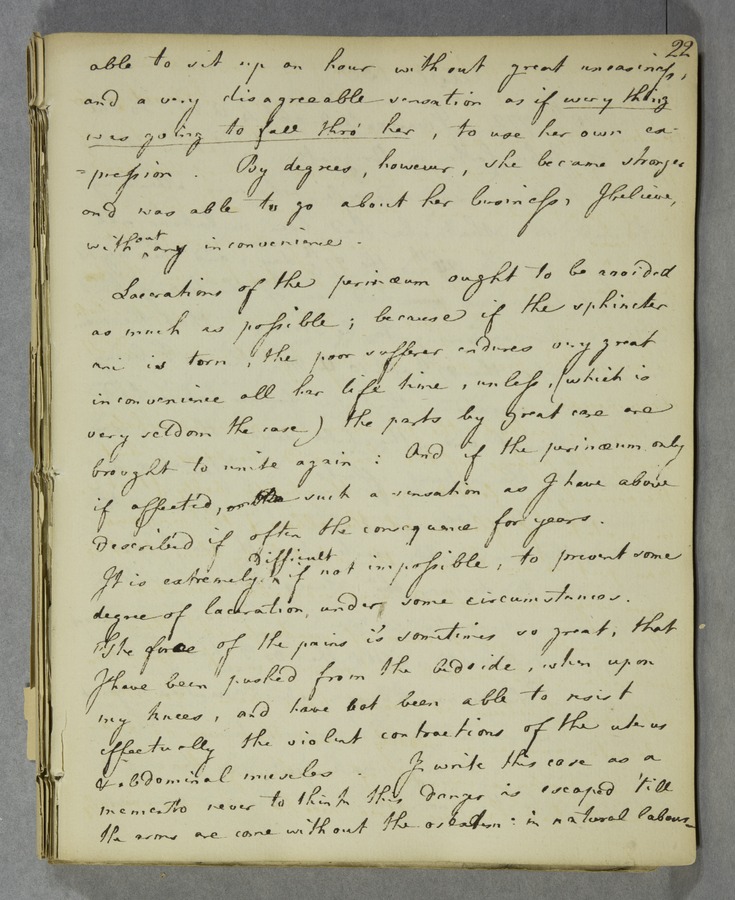 22
able to sit up an hour without great uneasiness,
and a very disagreeable sensation as if every thing
was going to fall thro' her, to use her own ex-
=pression. By degrees, however, she became stronger
and was able to go about her business, I believe,
without any inconvenience.
Lacerations of the perinæum ought to be avoided
as much as possible; because if the sphincter
ani is torn, the poor sufferer endures very great
inconvenience all her life time, unless, (which is
very seldom the case) the parts by great care are
brought to unite again: And if the perinæum only
if affected, such a sensation as I have above
described if often the consequence for years.
It is extremely difficult if not impossible, to prevent some
degree of laceration, under some circumstances.
The force of the pains is sometimes so great, that
I have been pushed from the bedside, when upon
my knees, and have not been able to resist
effectually the violent contractions of the uterus
& abdominal muscles. I write this case as a
memento never to think this danger is escaped 'till
the arms are come without the : in natural labours